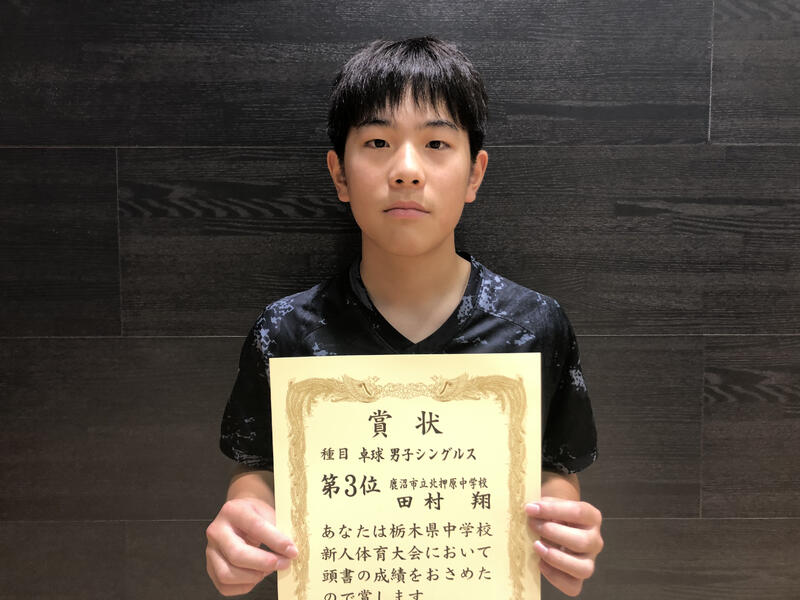 賞状
種目 卓球 男子シングルス
第3位 鹿沼市立北押原中学校
田村 翔
あなたは栃木県中学校
新人体育大会において
頭書の成績をおさめた
ので賞します